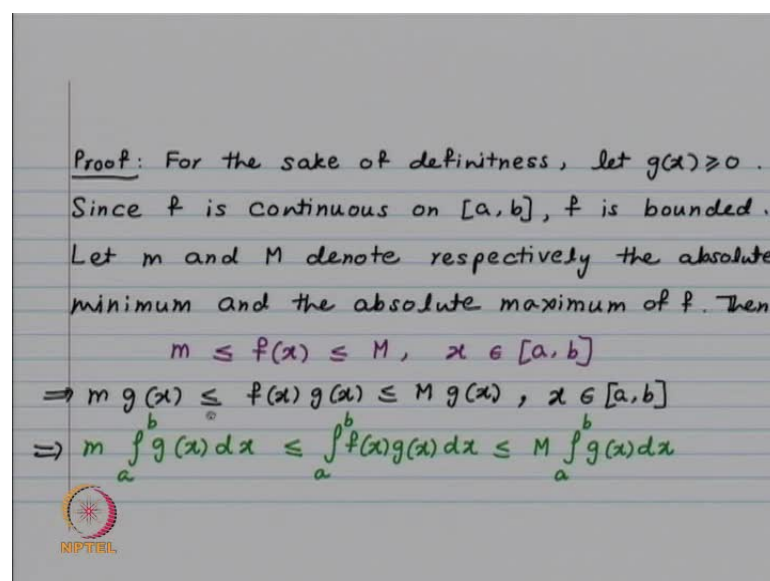 Proof: For the sake of definitness, let g(x) ⩾ 0.
Since f is continuous on [a, b], f is bounded.
Let m and M denote respectively the absolute
minimum and the absolute maximum of f. Then
m ≤ f(x) ≤ M, x ∈ [a, b]
⇒ m g(x) ≤ f(x) g(x) ≤ M g(x), x ∈ [a, b]
⇒ m ∫_a^b g(x) dx ≤ ∫_a^b f(x) g(x) dx ≤ M ∫_a^b g(x) dx
NPTEL